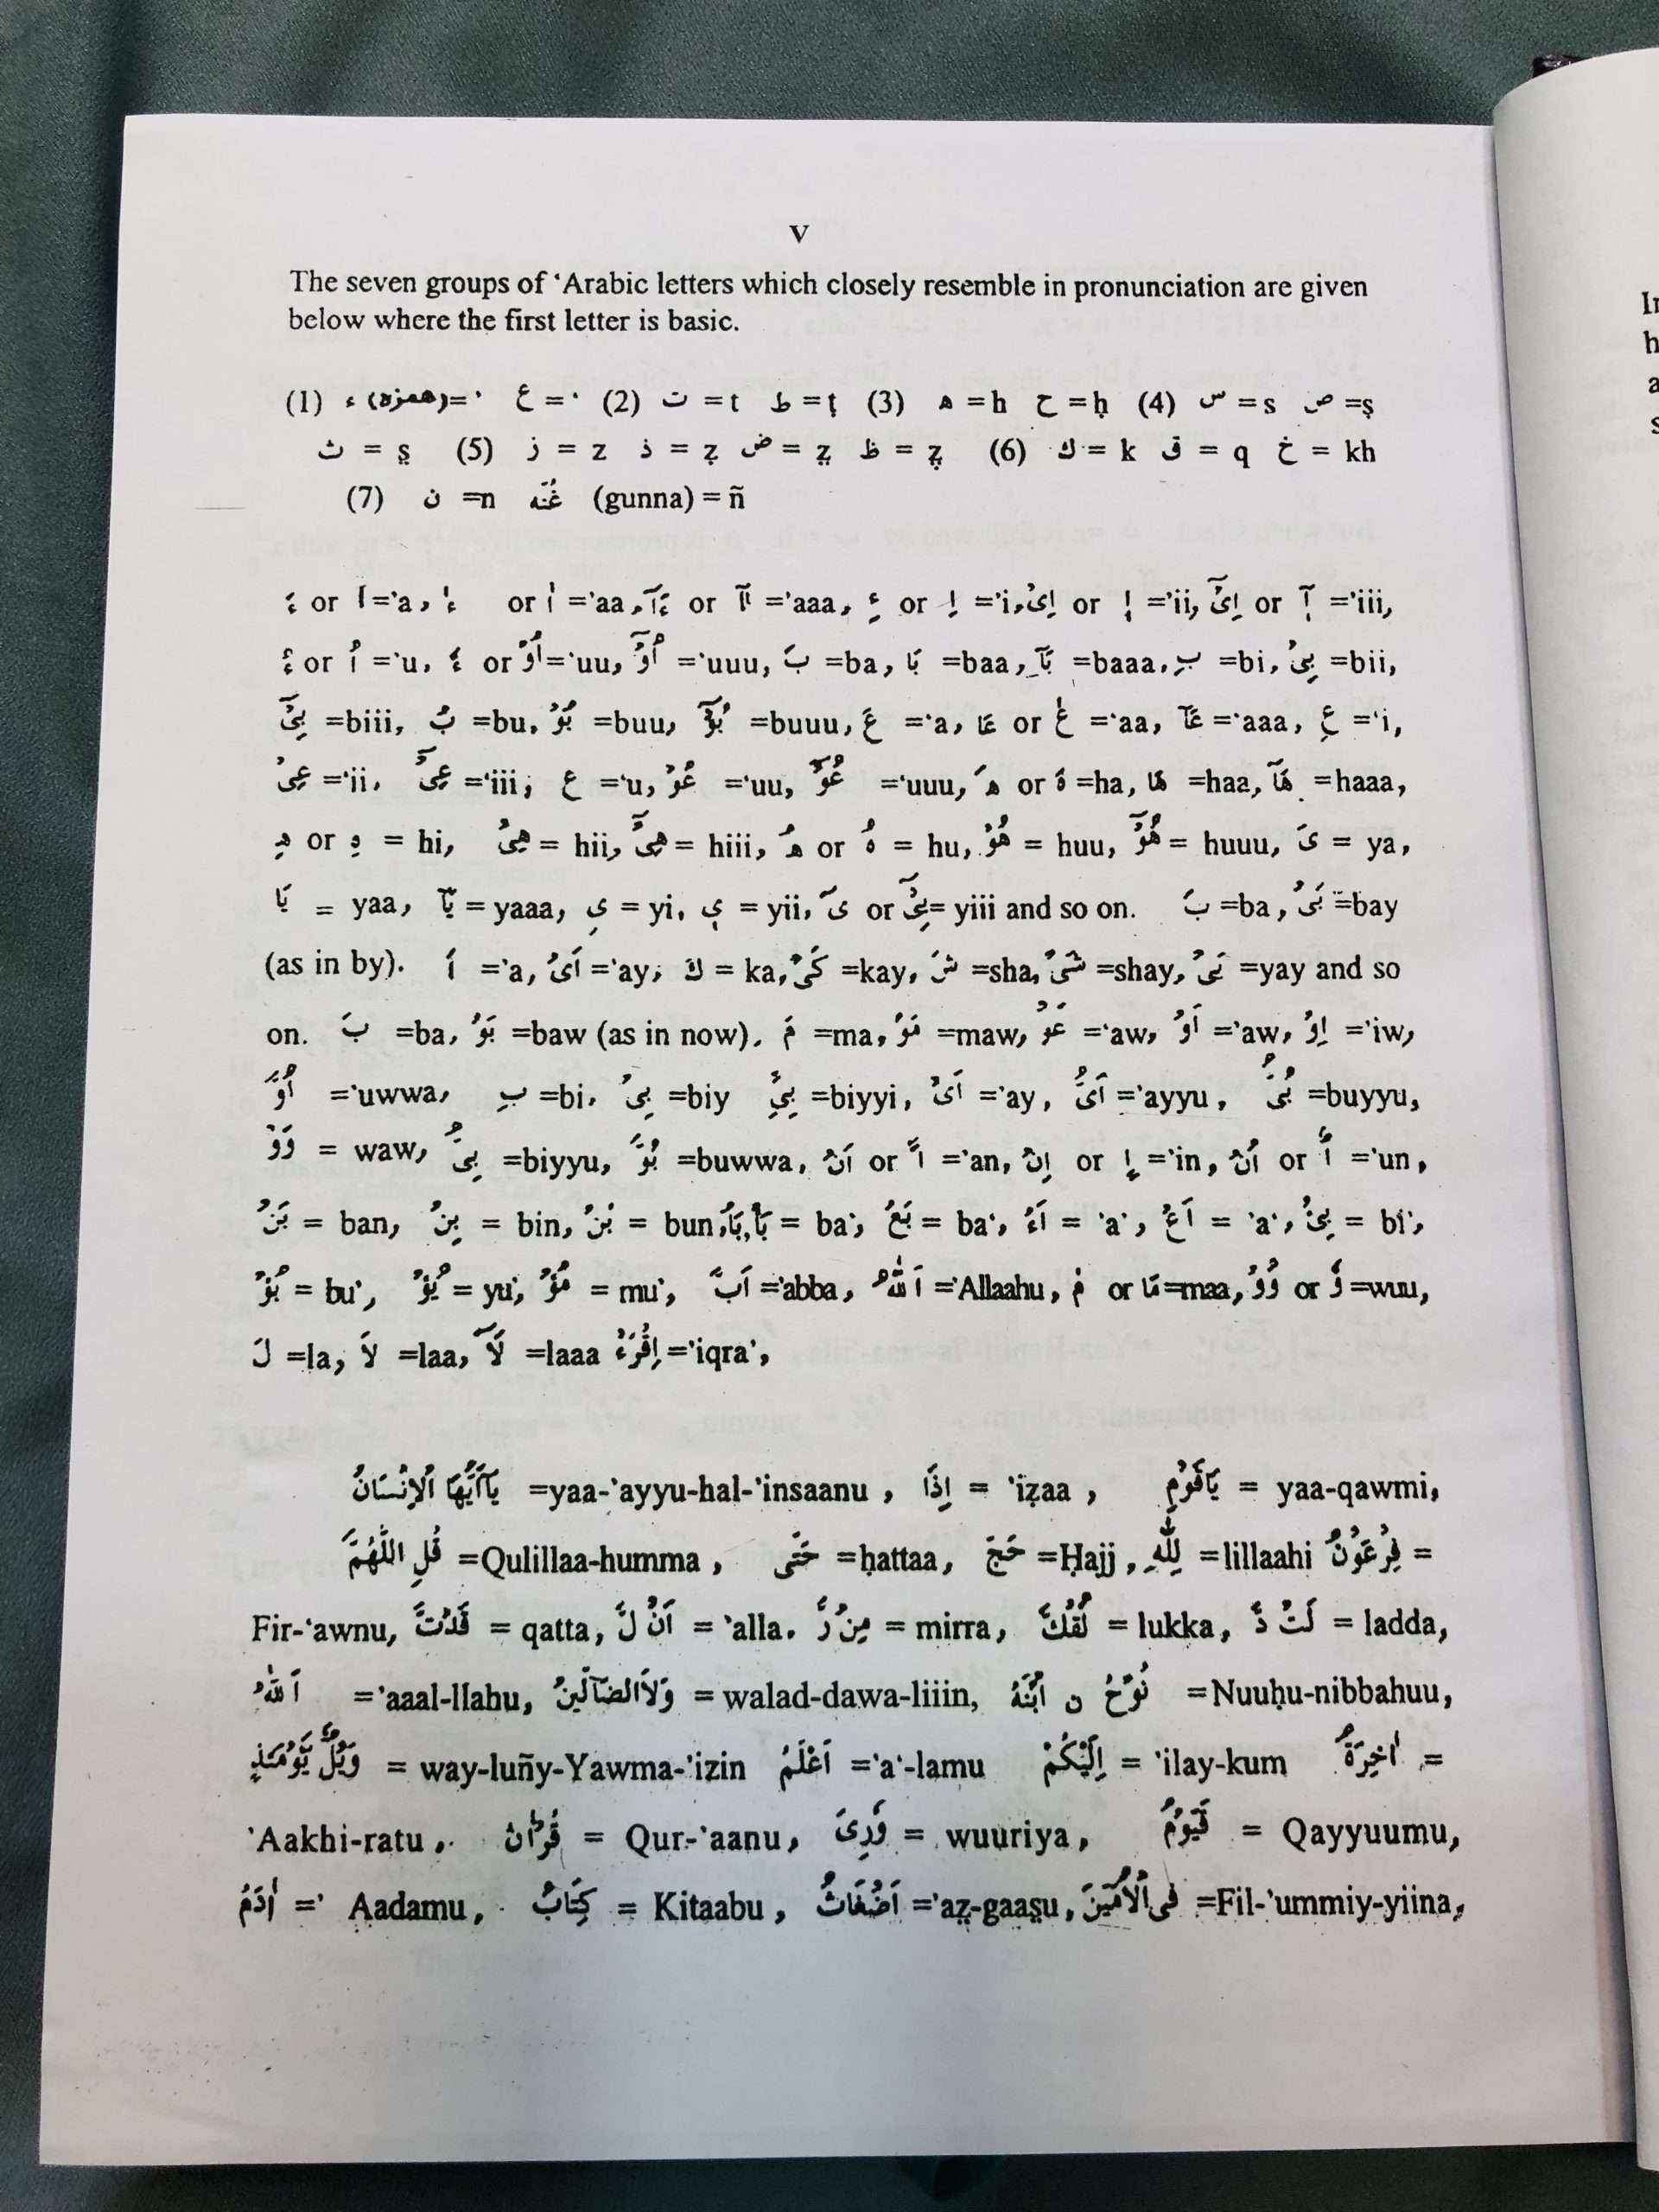 V
The seven groups of ‘Arabic letters which closely resemble in pronunciation are given
below where the first letter is basic.
(1) ء (همزه)=' ع =‘ (2) ت =t ط =ṭ (3) ه =h ح =ḥ (4) س =s ص =ṣ
ث = s̱ (5) ز = z ذ = ẓ ض = ẓ ظ = ẓ (6) ك = k ق = q خ = kh
(7) ن =n غُنّه (gunna) = ñ
ءَ or اَ ='a, or ='aa, or ='aaa, ءِ or اِ ='i, اِىْ or ='ii, or ='iii,
ءُ or اُ ='u, or اُوْ ='uu, اُوْٓ ='uuu, بَ =ba, بَا =baa, بَآ =baaa, بِ =bi, بِىْ =bii,
بِىْٓ =biii, بُ =bu, بُوْ =buu, بُوْٓ =buuu, عَ =‘a, عَا or =‘aa, عَآ =‘aaa, عِ =‘i,
عِىْ =‘ii, عِىْٓ =‘iii, ع =‘u, عُوْ =‘uu, عُوْٓ =‘uuu, هَ or هَ =ha, هَا =haa, هَآ =haaa,
هِ or هِ = hi, هِىْ = hii, هِىْٓ = hiii, هُ or هُ = hu, هُوْ = huu, هُوْٓ = huuu, ىَ = ya,
يَا = yaa, يَآ = yaaa, ىِ = yi, = yii, or = yiii and so on. بَ =ba, بَىْ =bay
(as in by). اَ ='a, اَىْ ='ay, كَ = ka, كَىْ =kay, شَ =sha, شَىْ =shay, يَىْ =yay and so
on. بَ =ba, بَوْ =baw (as in now), مَ =ma, مَوْ =maw, عَوْ =‘aw, اَوْ ='aw, اِوْ ='iw,
اُوَّ ='uwwa, بِ =bi, بِىْ =biy بِىِّ =biyyi, اَىْ ='ay, اَىُّ ='ayyu, بُىُّ =buyyu,
وَوْ = waw, بِىُّ =biyyu, بُوَّ =buwwa, اَنْ or اً ='an, اِنْ or اٍ ='in, اُنْ or اٌ ='un,
بَنْ = ban, بِنْ = bin, بُنْ = bun, = ba', بَعْ = ba‘, اَءْ = 'a', اَعْ = 'a‘, بِئْ = bi',
بُؤْ = bu', يُؤْ = yu', مُؤْ = mu', اَبَّ ='abba, اَللّٰهُ ='Allaahu, مٰ or مَا =maa, وُوْ or =wuu,
لَ =la, لاَ =laa, لَآ =laaa اِقْرَءْ ='iqra',
يَآاَيُّهَا الْاِنْسَانُ =yaa-'ayyu-hal-'insaanu, اِذَا = 'iẓaa, يَاقَوْمِ = yaa-qawmi,
قُلِ اللّٰهُمَّ =Qulillaa-humma, حَتّٰى =ḥattaa, حَجّ =Ḥajj, لِلّٰهِ =lillaahi فِرْعَوْنُ =
Fir-‘awnu, قَدْتَّ = qatta, اَنْ لَّ = 'alla. مِنْ رَّ = mirra, لُقْكَّ = lukka, لَتْ دَّ = ladda,
='aaal-llahu, وَلاَالضَّآلِّيْنَ = walad-dawa-liiin, نُوْحُ نِ ابْنَهٗ =Nuuḥu-nibbahuu,
وَيْلٌ يَّوْمَئِذٍ = way-luñy-Yawma-'izin اَعْلَمُ ='a‘-lamu اِلَيْكُمْ = 'ilay-kum اٰخِرَةُ =
'Aakhi-ratu, قُرْاٰنُ = Qur-'aanu, وُرِىَ = wuuriya, قَيُّوْمُ = Qayyuumu,
اٰدَمُ =' Aadamu, كِتَابُ = Kitaabu, اَضْغَاثُ ='aẓ-gaas̱u, فِى الْاُمِّيّٖنَ =Fil-'ummiy-yiina,